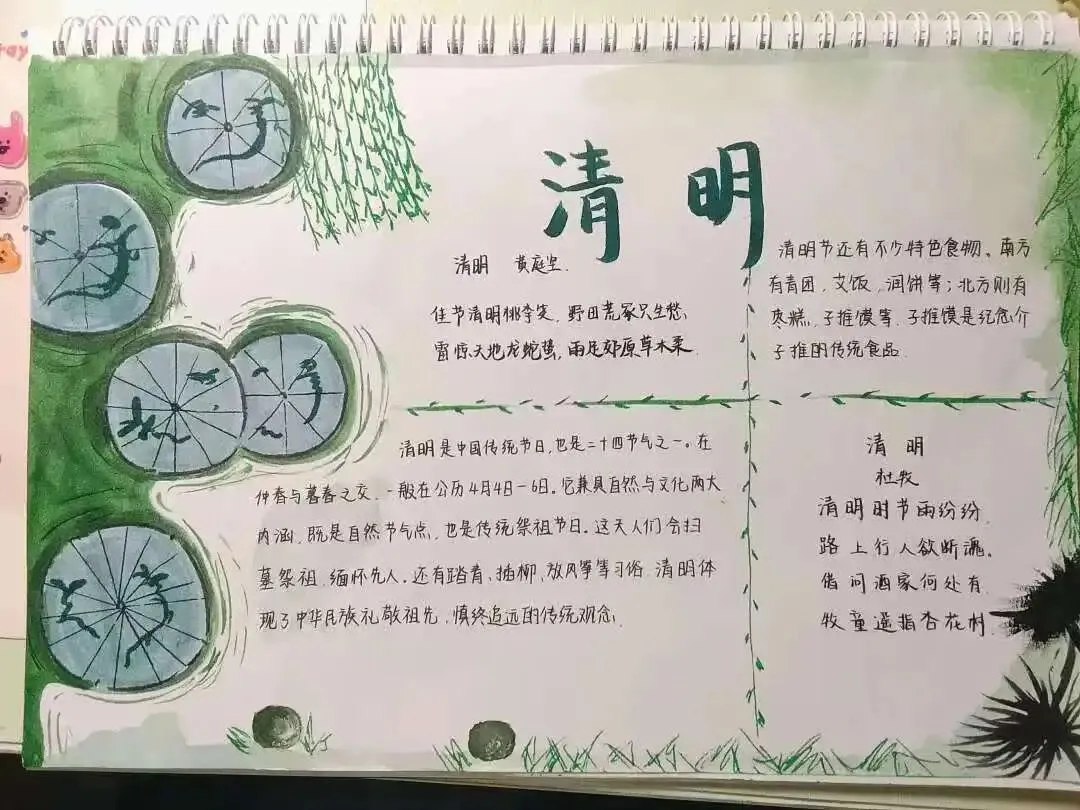 清明
清明 黄庭坚
佳节清明桃李笑，野田荒冢只生愁，
雷惊天地龙蛇蛰，雨足郊原草木柔．
清明节还有不少特色食物。南方
有青团、艾饭，润饼等；北方则有
枣糕，子推馍等．子推馍是纪念介
子推的传统食品．
清明是中国传统节日，也是二十四节气之一。在
仲春与暮春之交．一般在公历4月4日－6日。它兼具自然与文化两大
内涵，既是自然节气点，也是传统祭祖节日。这天人们会扫
墓祭祖，缅怀先人．还有踏青、插柳、放风筝等习俗．清明体
现了中华民族礼敬祖先，慎终追远的传统观念．
清 明
杜牧
清明时节雨纷纷，
路上行人欲断魂。
借问酒家何处有
牧童遥指杏花村．